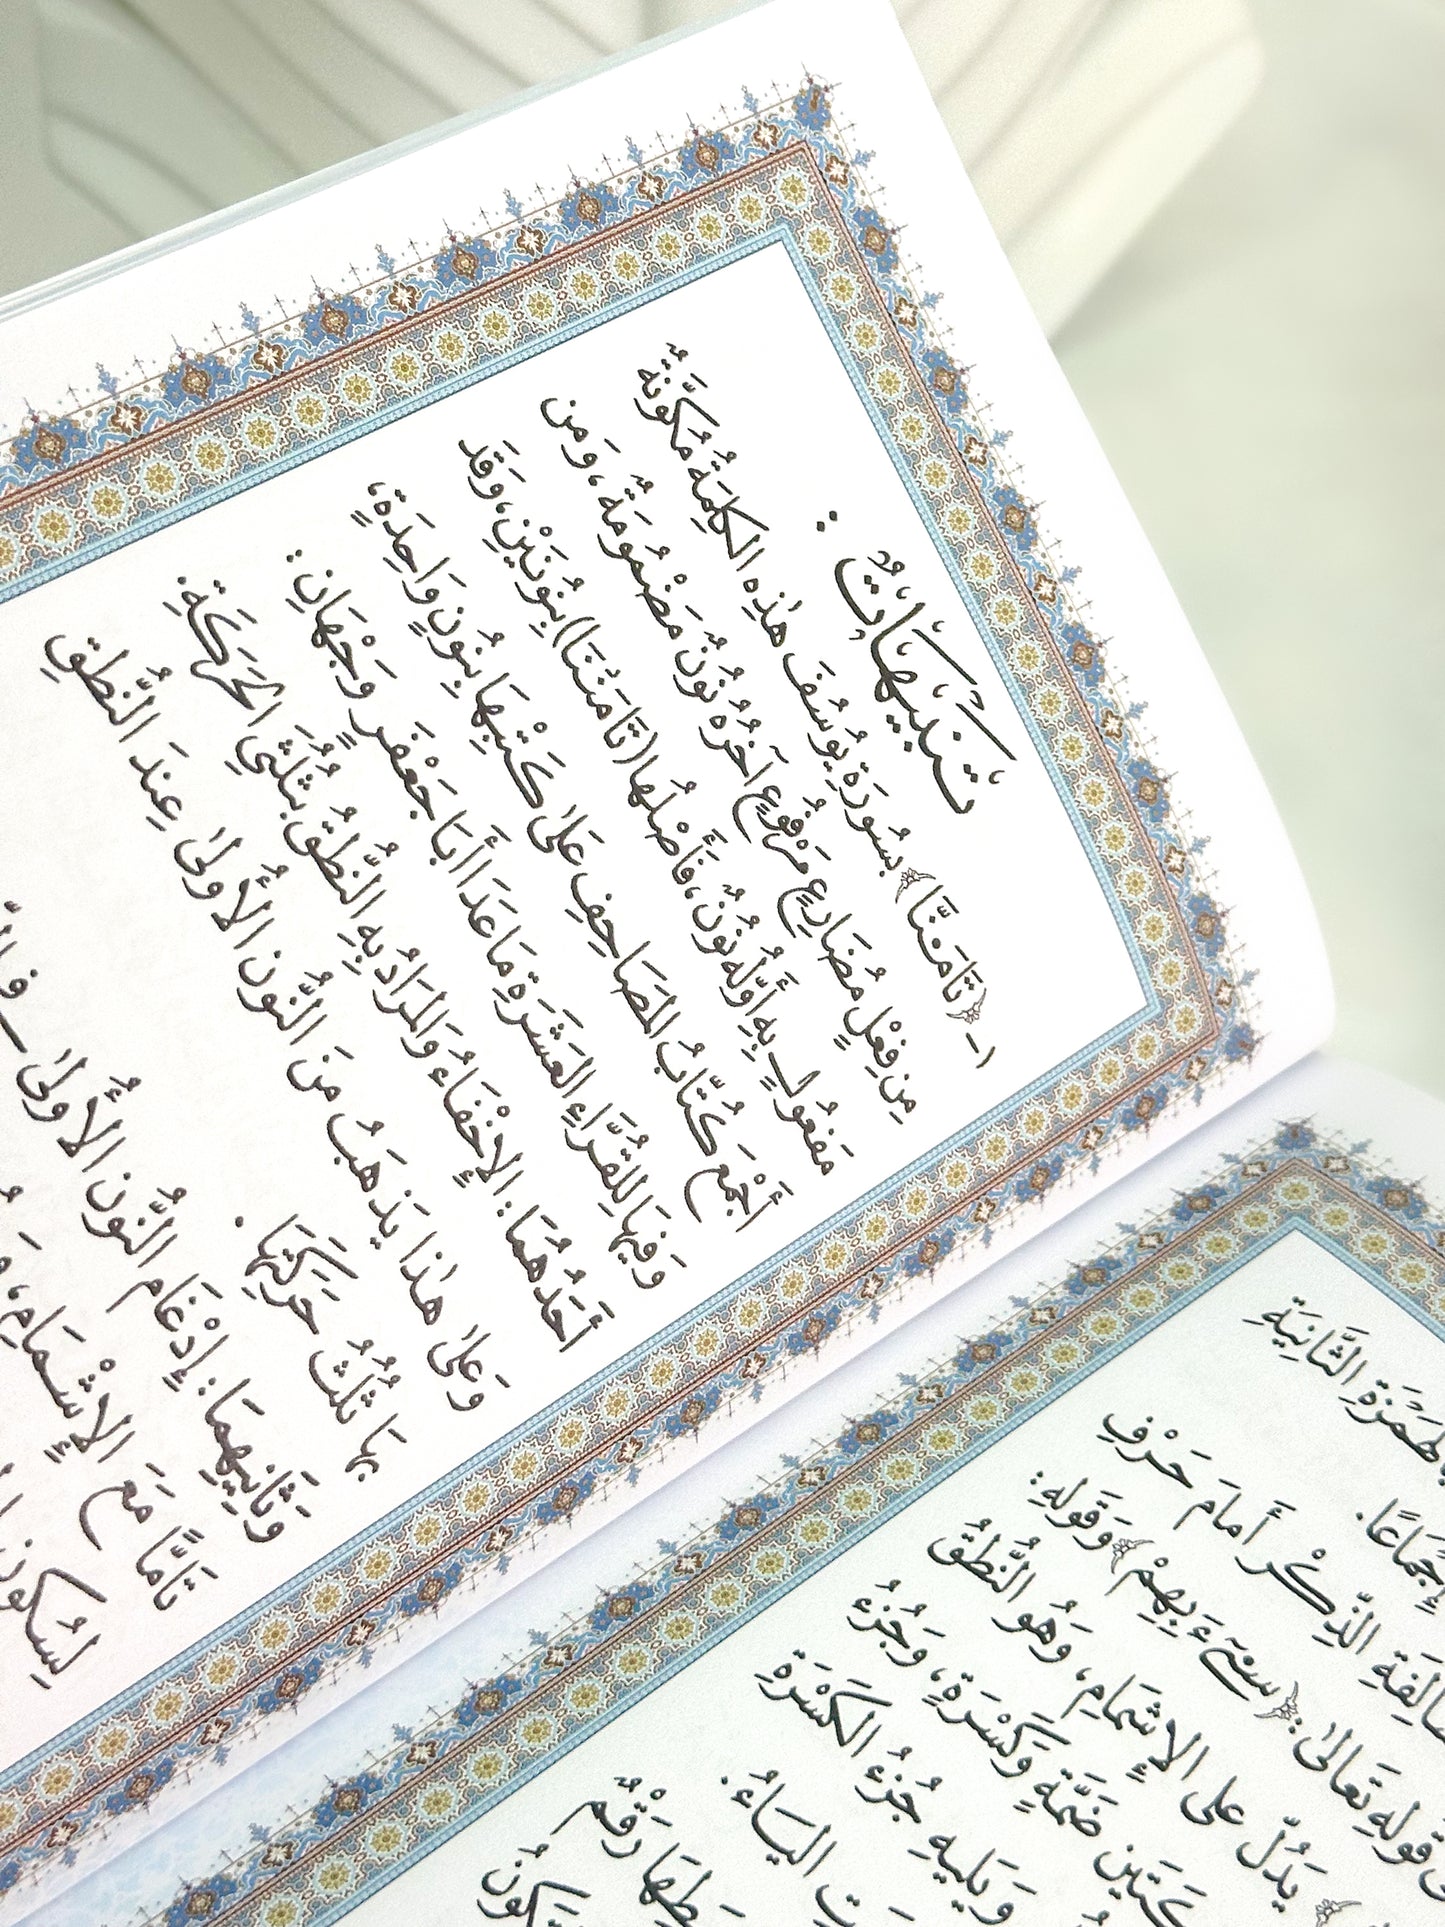 تَنْبِيهَاتٌ :
١- ﴿تَأْمَ۫نَّا﴾ بِسُورَةِ يُوسُفَ هٰذِهِ الكَلِمَةُ مُكَوَّنَةٌ
مِن فِعْلٍ مُضَارِعٍ مَرْفُوعٍ آخِرُهُ نُونٌ مَضْمُومَةٌ، وَمِن
مَفعُولٍ بِهِ أَوَّلُهُ نُونٌ، فَأَصْلُهَا (تَأْمَنُنَا) بِنُونَيْنِ، وَقَد
أَجْمَعَ كُتَّابُ المَصَاحِفِ عَلَىٰ كَتْبِهَا بِنُونٍ وَاحِدَةٍ،
وَفِيهَا لِلقُرَّاءِ العَشَرَةِ مَا عَدَا أَبَا جَعْفَرٍ وَجْهَانِ :
أَحَدُهُمَا : الإِخْفَاءُ وَالمُرَادُ بِهِ النُّطْقُ بِثُلُثَيِ الحَرَكَةِ،
وَعَلَىٰ هٰذَا يَذهَبُ مِنَ النُّونِ الأُولَىٰ عِندَ النُّطقِ
بِهَا ثُلُثُ حَرَكَتِهَا .
وَثَانِيهِمَا : إِدْغَامُ النُّونِ الأُولَىٰ
تَامًّا مَعَ الإِشْمَامِ،
لِسُكُونِ
الثَّانِيَةِ
إِجمَاعًا.
الذِّكْرِ أَمَامَ حَرْفِ
قَولِهِ تَعَالَىٰ: ﴿سِيٓءَ بِهِمْ﴾ وَقَولِهِ:
يَدُلّ على الإِشمَامِ، وَهُو النُّطقُ
ضَمَّةٍ وَكَسْرَةٍ، وَجُزءُ
وَيَلِيهِ جُزءُ الكَسْرَةِ
اليَاءُ.
رَقْمُ